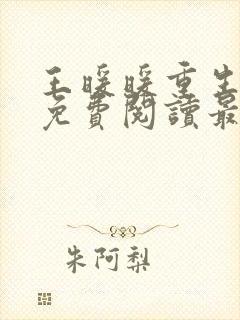 王暖暖重生
免費閱讀最
朱阿梨